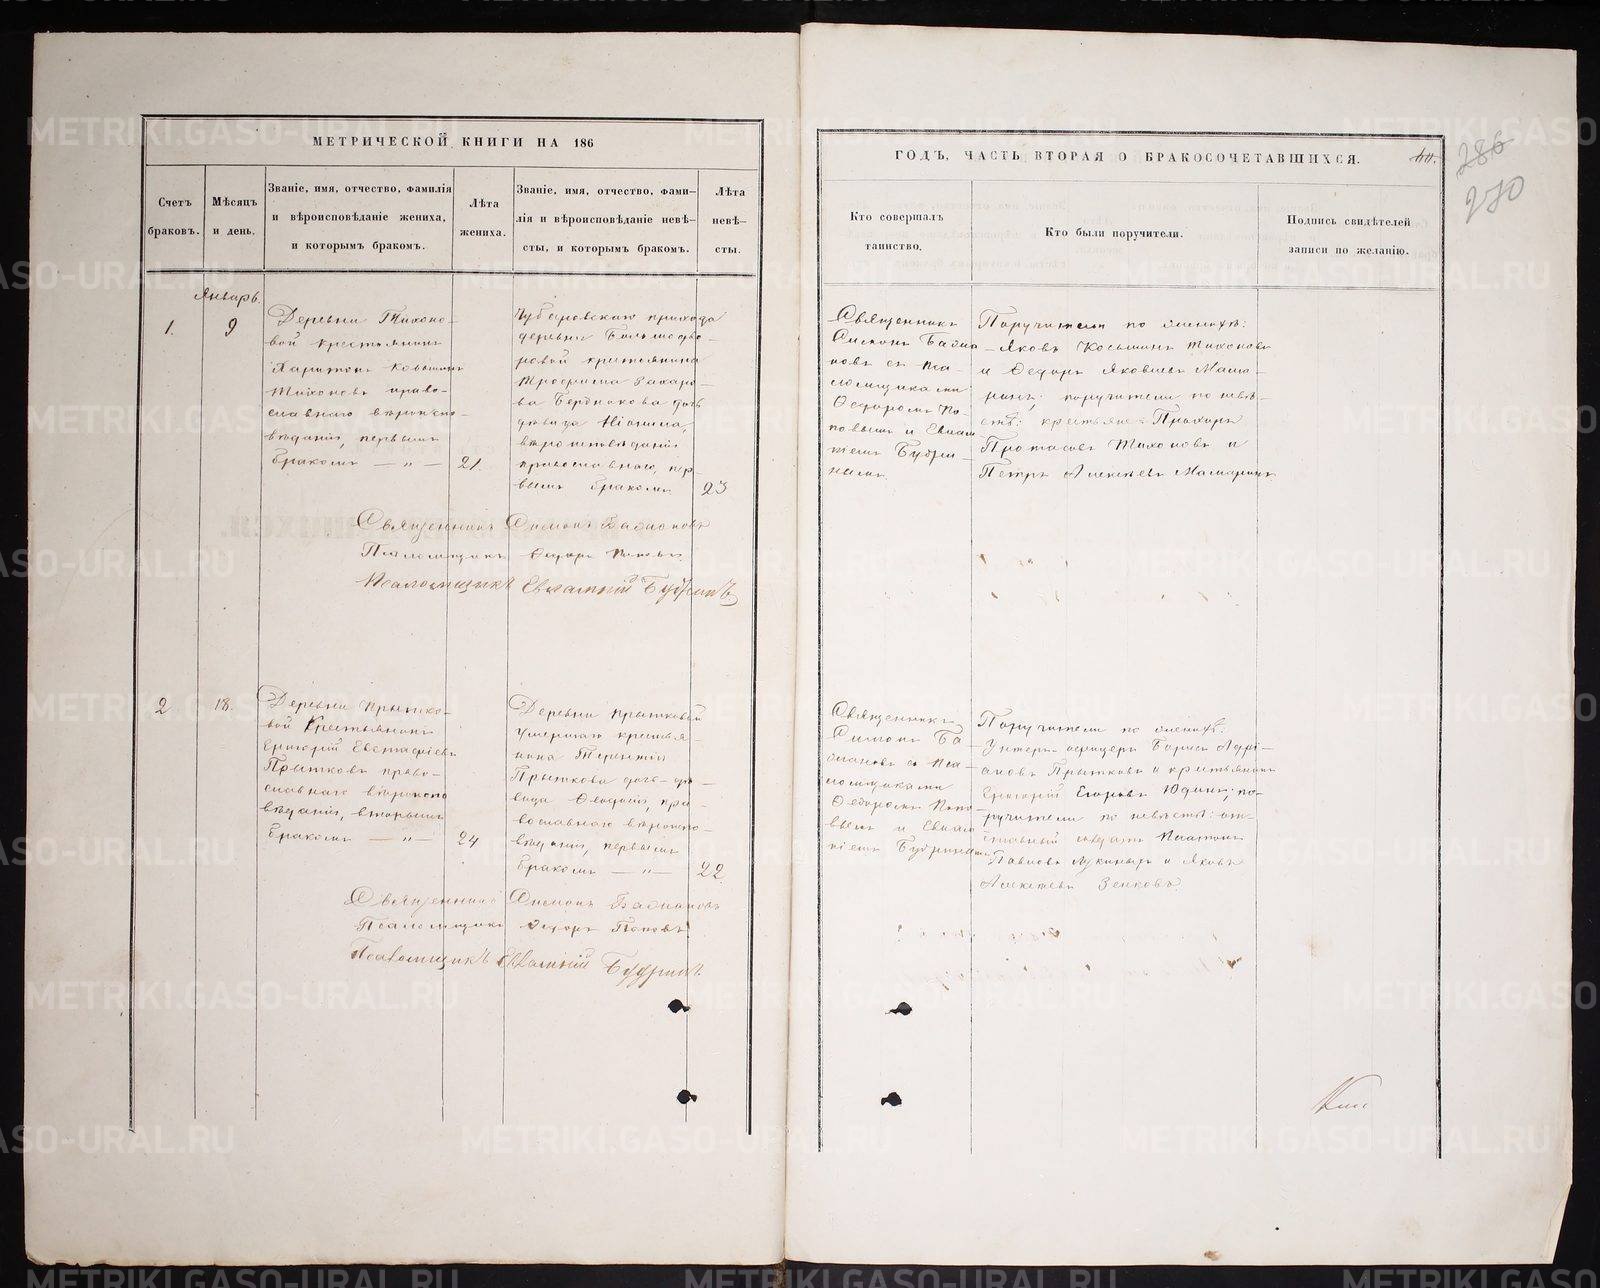 МЕТРИЧЕСКОЙ КНИГИ НА 186
Счетъ
браковъ.
Мѣсяцъ
и день.
Званіе, имя, отчество, фамилія
и вѣроисповѣданіе жениха,
и которымъ бракомъ.
Лѣта
жениха.
Званіе, имя, отчество, фами-
лія и вѣроисповѣданіе невѣ-
сты, и которымъ бракомъ.
Лѣта
невѣ-
сты.
Январь.
1.
9
Деревни Тихоно-
вой крестьянинъ
Харитонъ Козьминъ
Тихоновъ право-
славнаго вѣроиспо-
вѣданія, первымъ
бракомъ — „ —
21.
Чубаровскаго прихода
деревни
ровой крестьянина
Трофима Захаро-
ва Бердюкова дочь
дѣвица
вѣроисповѣданія
православнаго, пер-
вымъ бракомъ
23
Священникъ Симонъ Бажановъ
Псаломщикъ Ѳедоръ Поповъ
Псаломщикъ Евлампій Будринъ
2
18.
Деревни Прытко-
вой Крестьянинъ
Григорій Евстафіевъ
Прытковъ право-
славнаго вѣроиспо
вѣданія, вторымъ
бракомъ — „ —
24
Деревни Прытковой
умершаго крестья-
нина Терентія
Прыткова дочь-дѣ-
вица Ѳеодосія, пра-
вославнаго вѣроиспо-
вѣданія, первымъ
бракомъ — „ —
22
Священникъ Симонъ Бажановъ
Псаломщикъ Ѳедоръ Поповъ
Псаломщикъ Евлампій Будринъ
ГОДЪ, ЧАСТЬ ВТОРАЯ О БРАКОСОЧЕТАВШИХСЯ.
286
270
Кто совершалъ
таинство.
Кто были поручители.
Подпись свидѣтелей
записи по желанію.
Священникъ
Симонъ Бажа
новъ съ пса-
ломщиками
Ѳедоромъ По-
повымъ и Евлам
піемъ Будри-
нымъ
Поручители по женихѣ:
Яковъ Козьминъ Тихоновъ
и Ѳедоръ Яковлевъ Мама-
ринъ; поручители по невѣ-
стѣ: крестьяне Прохоръ
Протасовъ Тихоновъ и
Петръ Алексѣевъ Мамаринъ
Священникъ
Симонъ Ба-
жановъ съ пса-
ломщиками
Ѳедоромъ Попо-
вымъ и Евлам
піемъ Будринымъ
Поручители по женихѣ:
Унтеръ-офицеръ Борисъ Адрі-
ановъ Прытковъ и крестьянинъ
Григорій Егоровъ Юдинъ; по-
ручители по невѣстѣ: от-
ставный солдатъ Платонъ
Павловъ Лукиныхъ и Яковъ
Алексѣевъ Зенковъ.